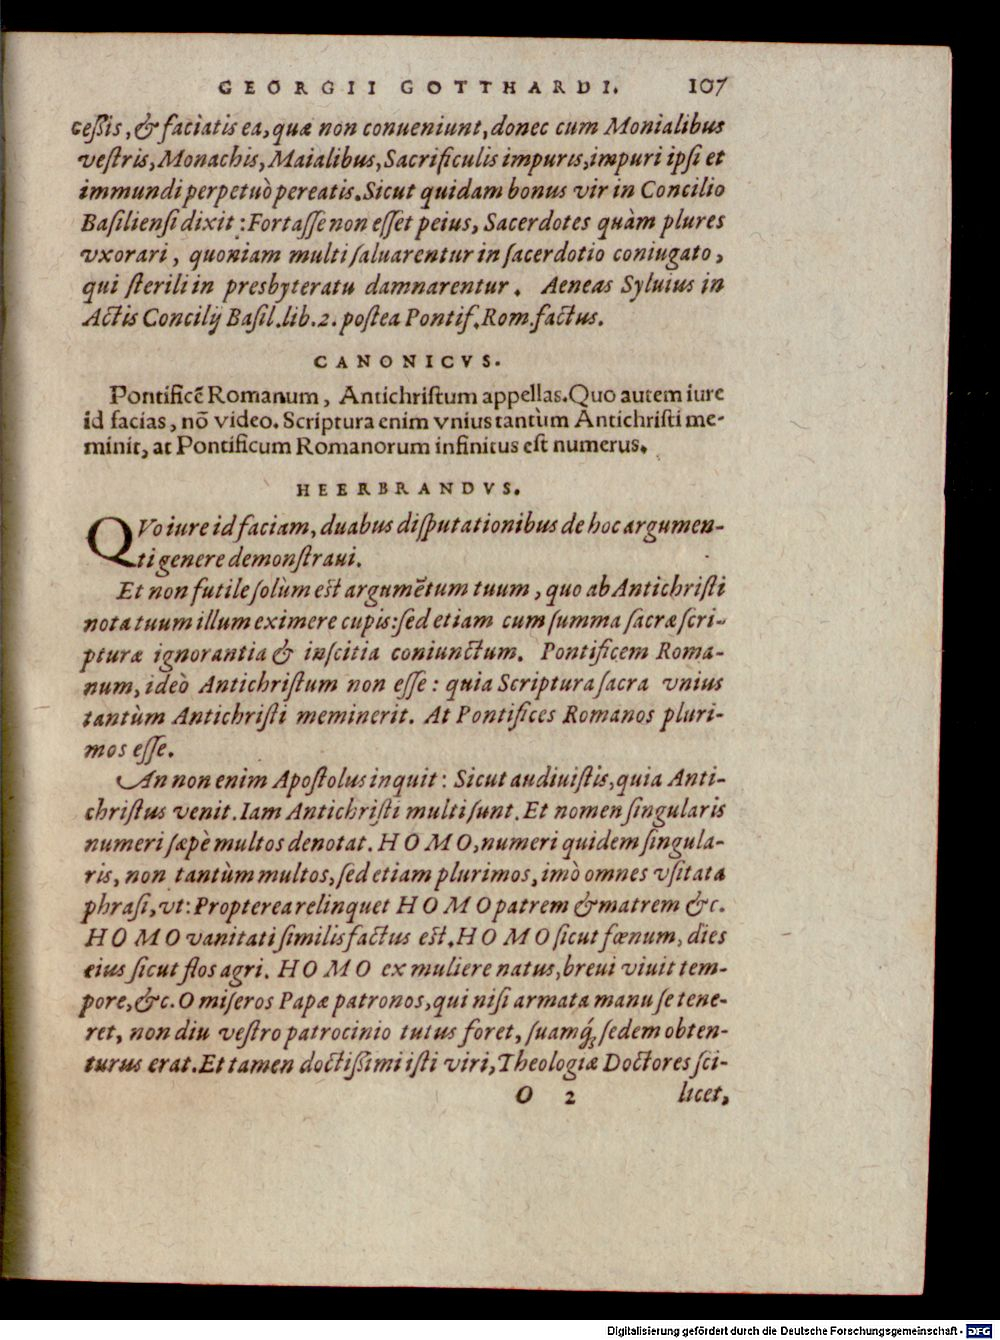 GEORGII GOTTHARDI. 107
ceſsis, & faciatis ea, quæ non conueniunt, donec cum Monialibus
veſtris, Monachis, Maialibus, Sacrificulis impuris, impuri ipſi et
immundi perpetuò pereatis. Sicut quidam bonus vir in Concilio
Baſilienſi dixit: Fortaſſe non eſſet peius, Sacerdotes quàm plures
vxorari, quoniam multi ſaluarentur in ſacerdotio coniugato,
qui ſterili in presbyteratu damnarentur. Aeneas Syluius in
Actis Concilij Baſil. lib. 2. poſtea Pontif. Rom. factus.
CANONICVS.
Pontificẽ Romanum, Antichriſtum appellas. Quo autem iure
id facias, nõ video. Scriptura enim vnius tantùm Antichriſti me-
minit, at Pontificum Romanorum infinitus eſt numerus.
HEERBRANDVS.
QVo iure id faciam, duabus diſputationibus de hoc argumen-
ti genere demonſtraui.
Et non futile ſolùm eſt argumẽtum tuum, quo ab Antichriſti
nota tuum illum eximere cupis: ſed etiam cum ſumma ſacræ ſcri-
pturæ ignorantia & inſcitia coniunctum. Pontificem Roma-
num, ideò Antichriſtum non eſſe: quia Scriptura ſacra vnius
tantùm Antichriſti meminerit. At Pontifices Romanos pluri-
mos eſſe.
An non enim Apoſtolus inquit: Sicut audiuiſtis, quia Anti-
chriſtus venit. Iam Antichriſti multi ſunt. Et nomen ſingularis
numeri ſæpè multos denotat. HOMO, numeri quidem ſingula-
ris, non tantùm multos, ſed etiam plurimos, imò omnes vſitata
phraſi, vt: Propterea relinquet HOMO patrem & matrem &c.
HOMO vanitati ſimilis factus eſt. HOMO ſicut fœnum, dies
eius ſicut flos agri. HOMO ex muliere natus, breui viuit tem-
pore, &c. O miſeros Papæ patronos, qui niſi armata manu ſe tene-
ret, non diu veſtro patrocinio tutus foret, ſuamq́; ſedem obten-
turus erat. Et tamen doctiſsimi iſti viri, Theologiæ Doctores ſci-
O 2 licet,
Digitalisierung gefördert durch die Deutsche Forschungsgemeinschaft - DFG